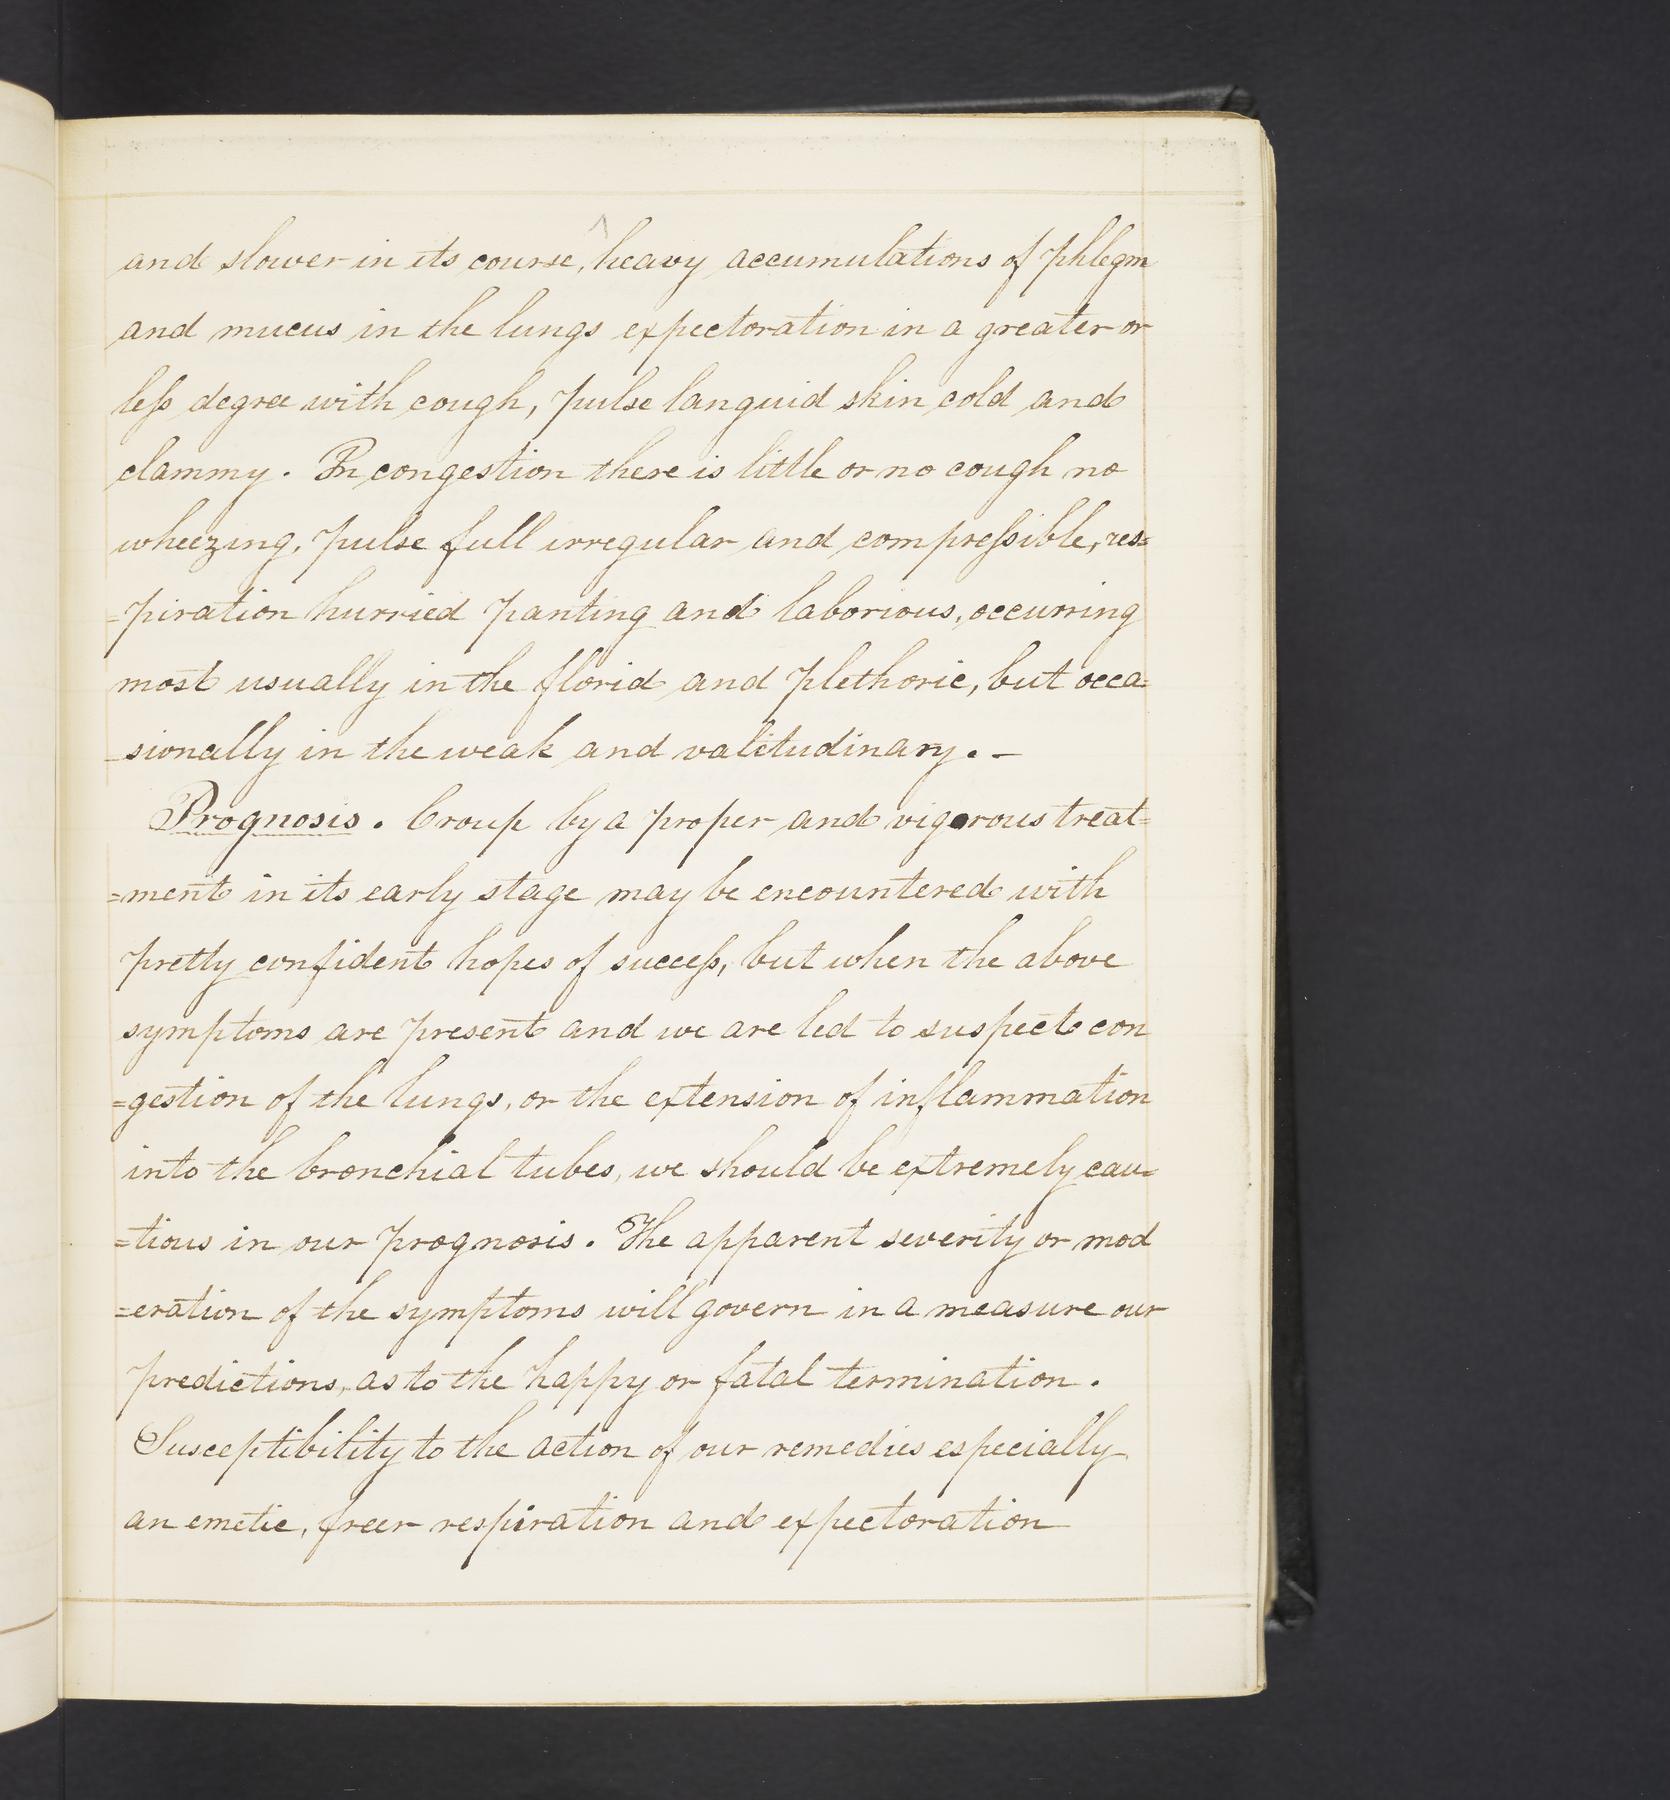 and slower in its course, heavy accumulations of phlegm
and mucus in the lungs expectoration in a greater or
less degree with cough, pulse languid skin cold and
clammy. In congestion there is little or no cough no
wheezing, pulse full irregular and compressible, res=
=piration hurried panting and laborious, occurring
most usually in the florid and plethoric, but occa=
-sionally in the weak and valitudinary. -
Prognosis. Croup by a proper and vigorous treat=
=ment in its early stage may be encountered with
pretty confident hopes of success, but when the above
symptoms are present and we are led to suspect con
=gestion of the lungs, or the extension of inflammation
into the bronchial tubes, we should be extremely cau=
=tious in our prognosis. The apparent severity or mod
=eration of the symptoms will govern in a measure our
predictions, as to the happy or fatal termination.
Susceptibility to the action of our remedies especially
an emetic, freer respiration and expectoration